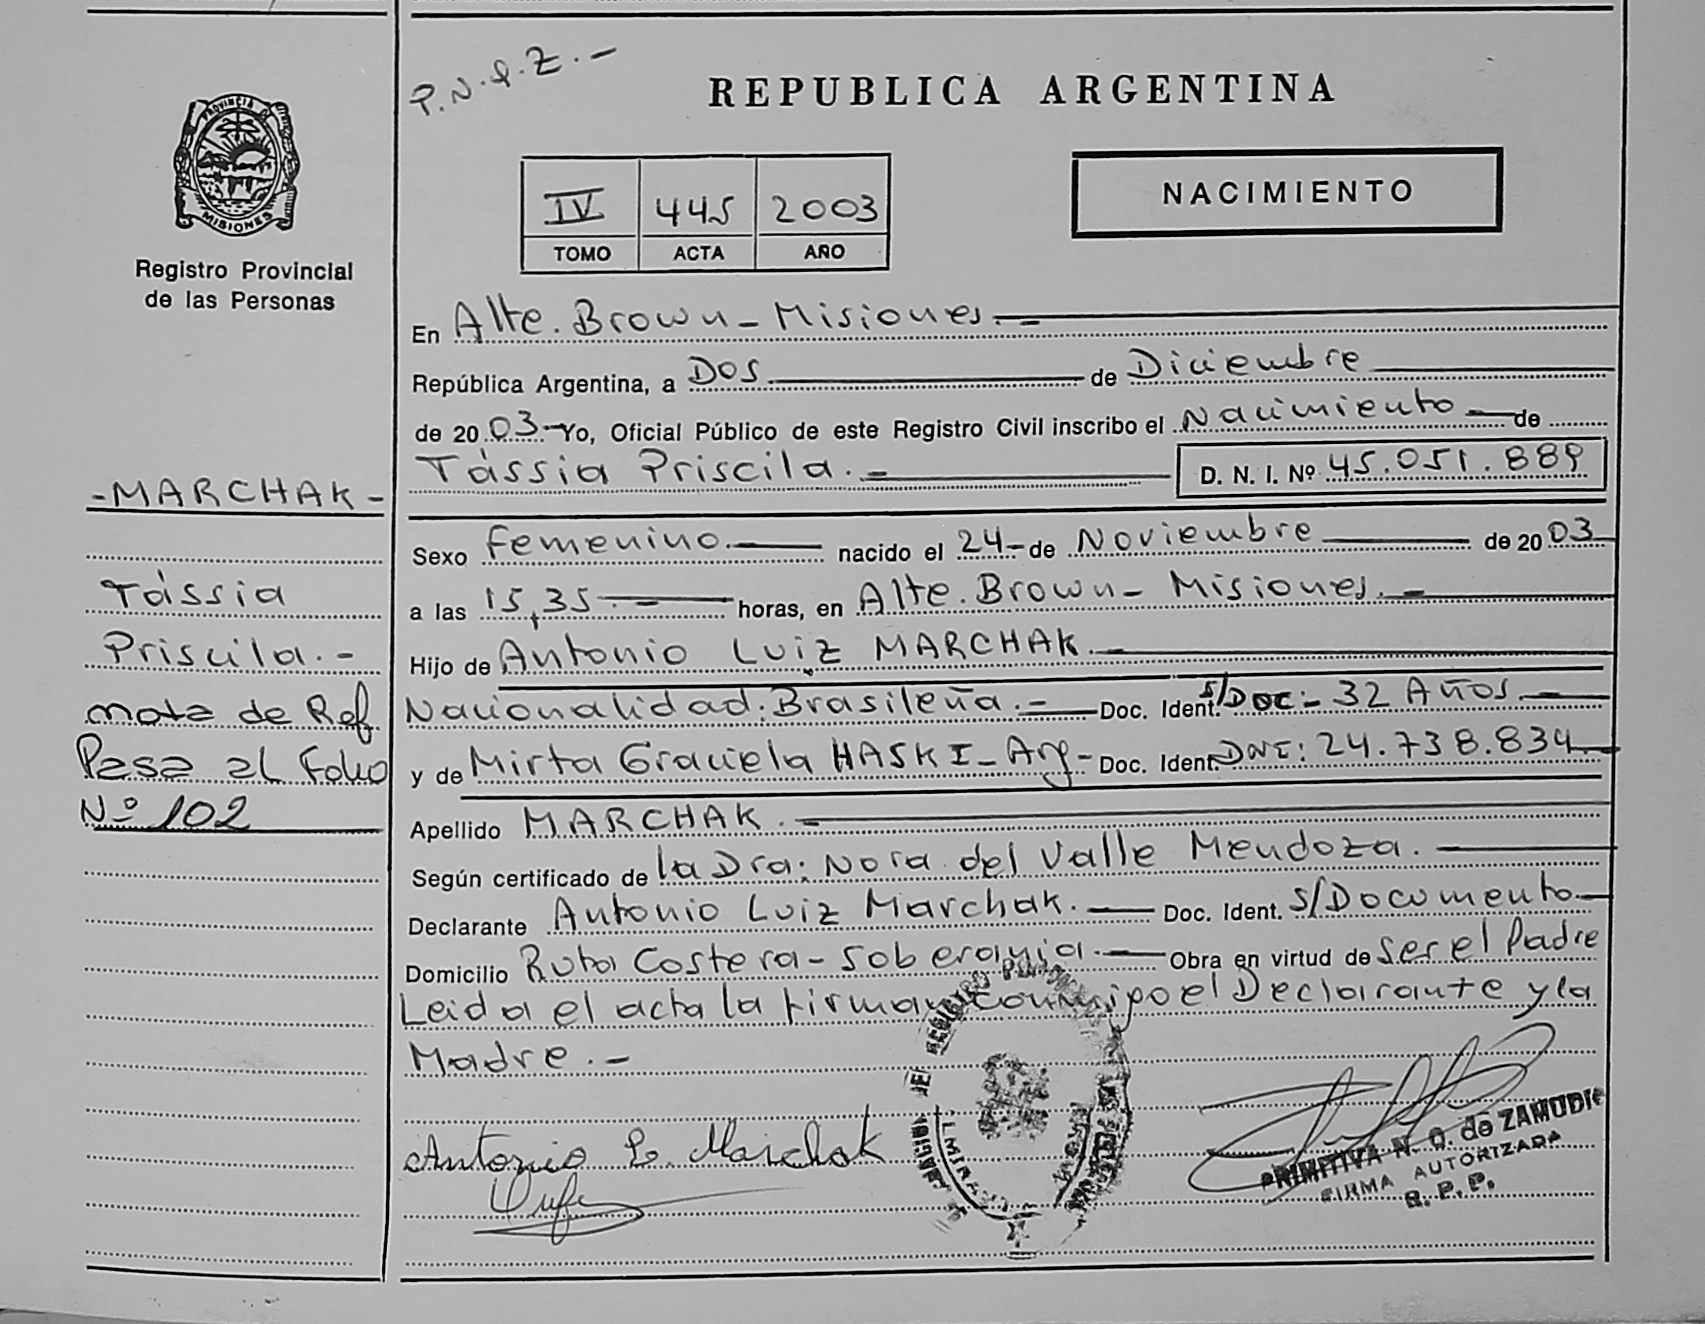 P.N.Q.Z.-
REPUBLICA ARGENTINA
PROVINCIA DE
MISIONES
Registro Provincial
de las Personas
IV 445 2003
TOMO ACTA AÑO
NACIMIENTO
-MARCHAK-
Tássia
Priscila.-
nota de Ref
Pasa al Folio
Nº 102
En Alte. Brown - Misiones.-
República Argentina, a Dos de Diciembre
de 2003 - Yo, Oficial Público de este Registro Civil inscribo el Nacimiento de
Tássia Priscila.- D. N. I. Nº 45.051.889
Sexo Femenino. nacido el 24 - de Noviembre de 2003
a las 15,35 - horas, en Alte. Brown - Misiones.-
Hijo de Antonio Luiz MARCHAK.
Nacionalidad: Brasileña.- Doc. Ident. s/Doc:- 32 Años.-
y de Mirta Graciela HASKI - Arg - Doc. Ident. DNI: 24.738.834
Apellido MARCHAK.-
Según certificado de la Dra: Nora del Valle Mendoza.
Declarante Antonio Luiz Marchak. Doc. Ident. s/Documento
Domicilio Ruta Costera - Soberania. Obra en virtud de ser el Padre
Leida el acta la firman conmigo el Declarante y la
Madre.-
Antonio L. Marchak
PRIMITIVA N. Q. de ZAMUDIO
FIRMA AUTORIZADA
R. P. P.